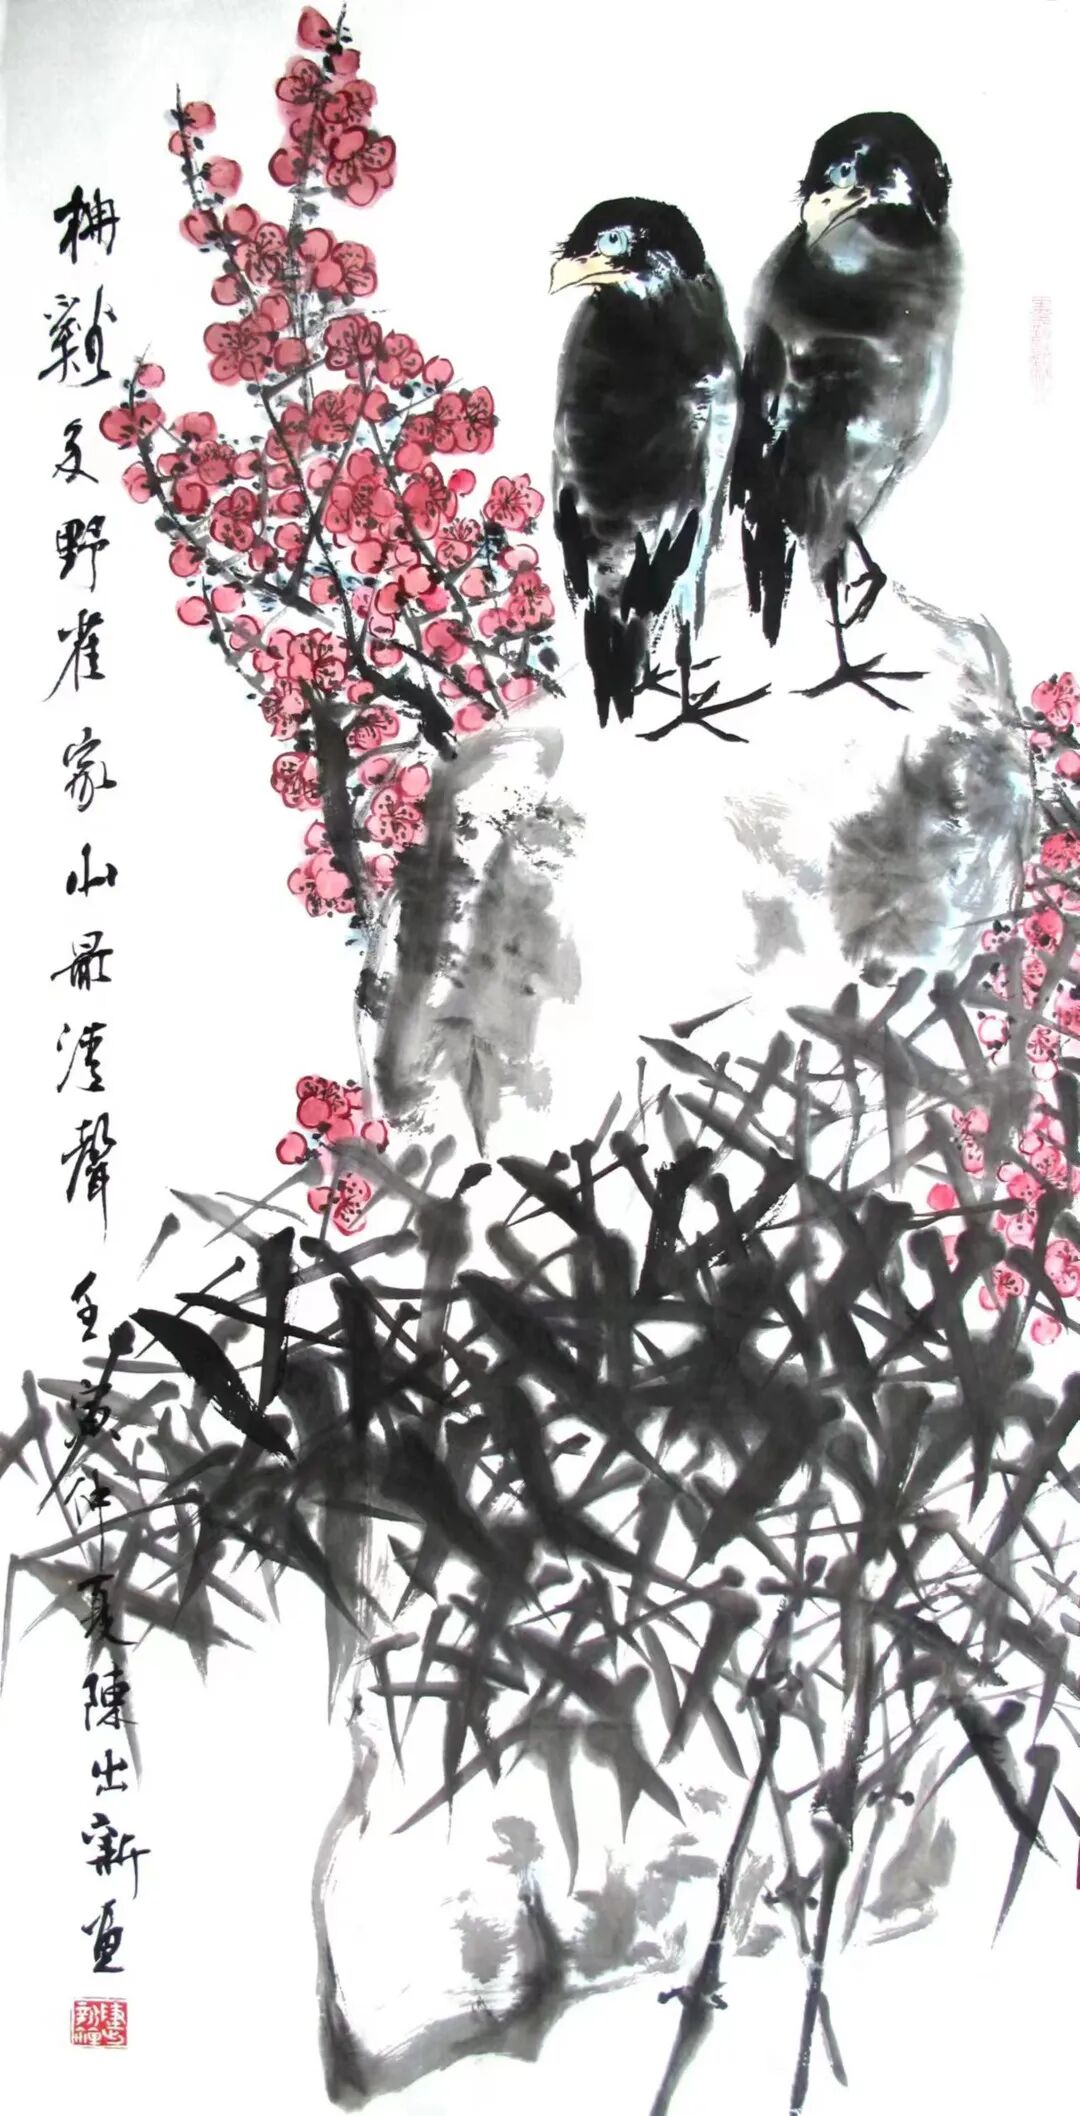 柟谿多野雀家山最清聲壬寅仲夏陳出新畫